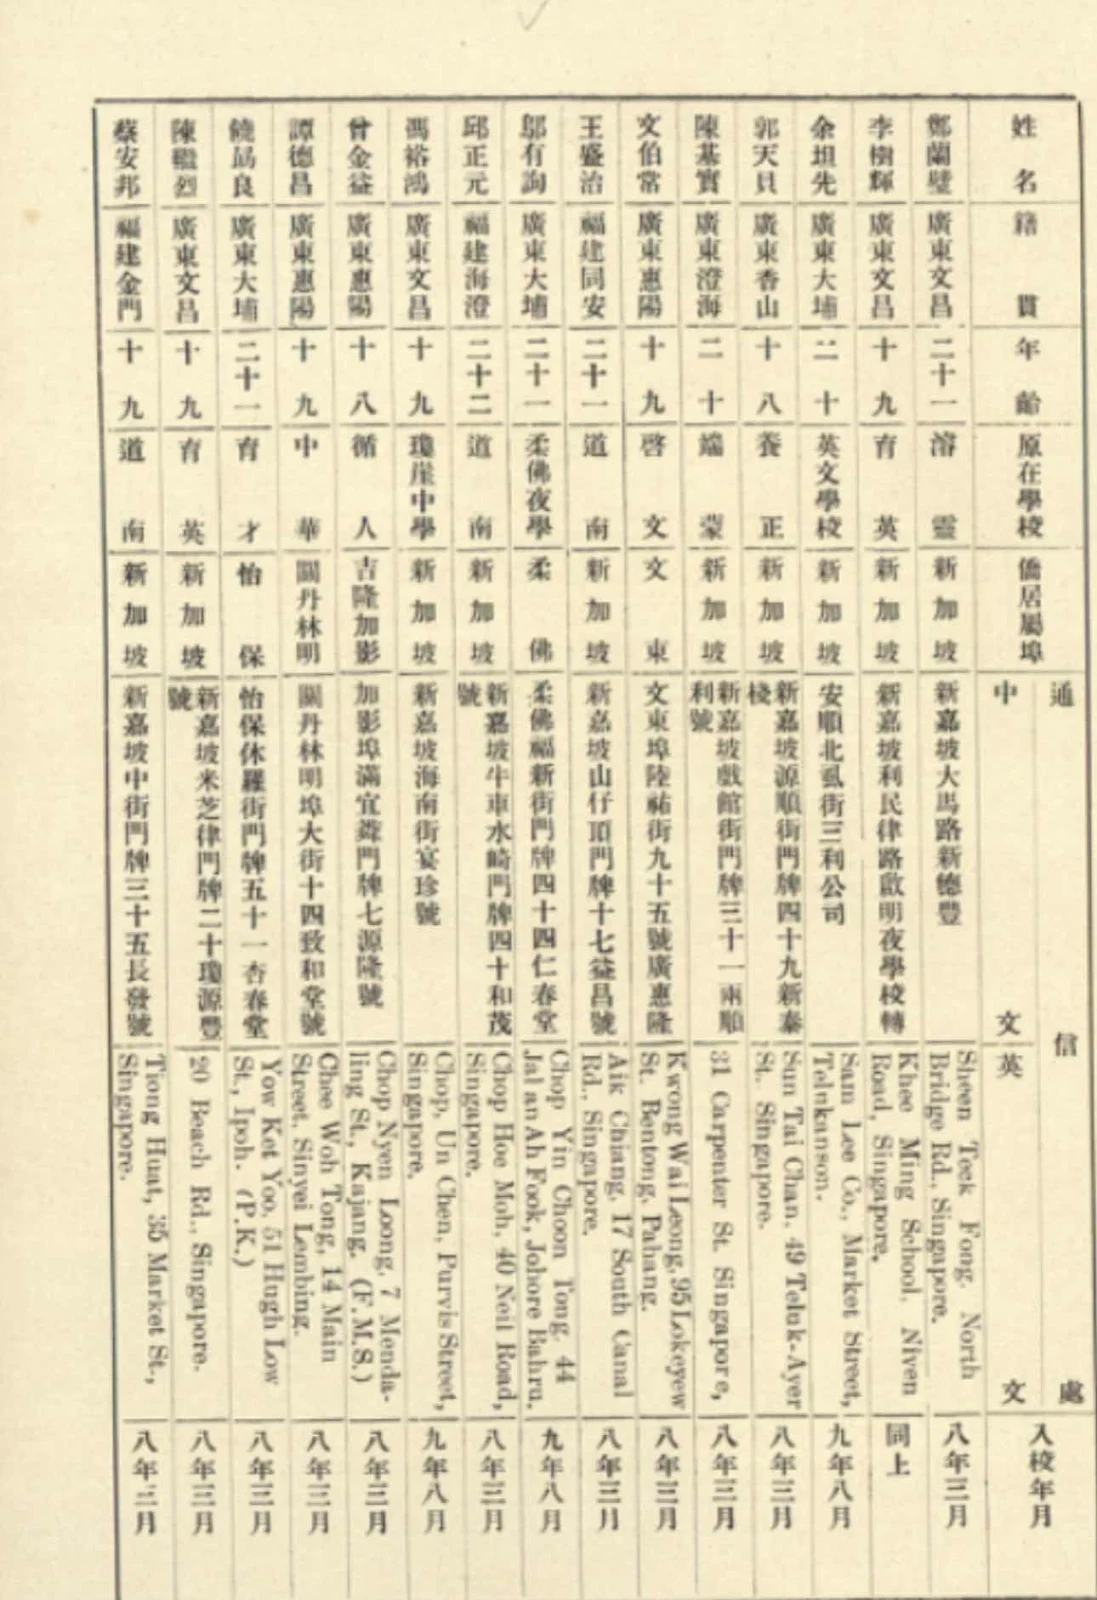 姓名 籍貫 年齡 原在學校 僑居屬埠 通信處 中文 英文 入校年月
鄭蘭璧 廣東文昌 二十一 溶靈 新加坡 新嘉坡大馬路新德豐 Sheen Teek Fong, North Bridge Rd., Singapore. 八年三月
李樹輝 廣東文昌 十九 育英 新加坡 新嘉坡利民律路啟明夜學校轉 Khee Ming School, Niven Road, Singapore. 同上
余坦先 廣東大埔 二十 英文學校 新加坡 安順北虱街三利公司 Sam Lee Co., Market Street, Telukanson. 九年八月
郭天貝 廣東香山 十八 養正 新加坡 新嘉坡源順街門牌四十九新泰棧 Sun Tai Chan, 49 Teluk-Ayer St., Singapore. 八年三月
陳基實 廣東澄海 二十 端蒙 新加坡 新嘉坡戲館街門牌三十一兩順利號 31 Carpenter St. Singapore, 八年三月
文伯常 廣東惠陽 十九 啓文 文東 文東埠陸祐街九十五號廣惠隆 Kwong Wai Leong, 95 Lokeyew St. Bentong, Pahang. 八年三月
王盛治 福建同安 二十一 道南 新加坡 新嘉坡山仔頂門牌十七益昌號 Aik Chiang, 17 South Canal Rd., Singapore. 八年三月
鄔有詢 廣東大埔 二十一 柔佛夜學 柔佛 柔佛福新街門牌四十四仁春堂 Chop Yin Choon Tong, 44 Jalan Ah Fook, Johore Bahru. 九年八月
邱正元 福建海澄 二十二 道南 新加坡 新嘉坡牛車水崎門牌四十和茂號 Chop Hoe Moh, 40 Neil Road, Singapore. 八年三月
馮裕鴻 廣東文昌 十九 瓊崖中學 新加坡 新嘉坡海南街宴珍號 Chop, Un Chen, Purvis Street, Singapore. 九年八月
曾金益 廣東惠陽 十八 循人 吉隆加影 加影埠滿宜街門牌七源隆號 Chop Nyen Loong, 7 Mendaling St., Kajang. (F.M.S.) 八年三月
譚德昌 廣東惠陽 十九 中華 關丹林明 關丹林明埠大街十四致和堂號 Chee Woh Tong, 14 Main Street, Sinyei Lembing. 八年三月
饒勗良 廣東大埔 二十一 育才 怡保 怡保休羅街門牌五十一杏春堂 Yow Ket Yoo, 51 Hugh Low St., Ipoh. (P.K.) 八年三月
陳繼烈 廣東文昌 十九 育英 新加坡 新嘉坡米芝律門牌二十瓊源豐號 20 Beach Rd., Singapore. 八年三月
蔡安邦 福建金門 十九 道南 新加坡 新嘉坡中街門牌三十五長發號 Tiong Huat, 35 Market St., Singapore. 八年三月